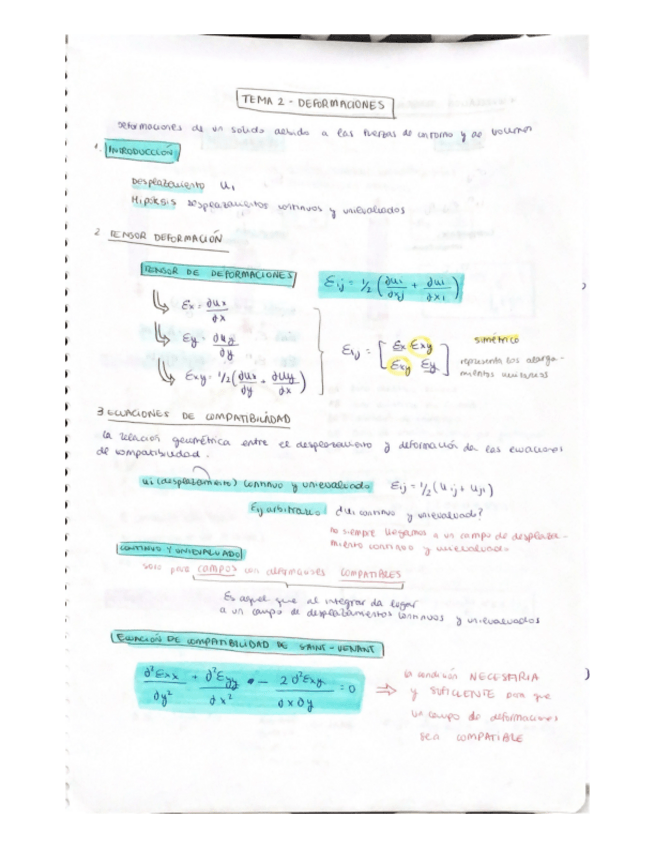 TEMA 2 - DEFORMACIONES
Deformaciones de un solido debido a las fuerzas de contorno y de volumen
1. INTRODUCCIÓN
Desplazamiento ui
Hipótesis desplazamientos continuos y univaluados
2 TENSOR DEFORMACIÓN
TENSOR DE DEFORMACIONES εij = 1/2 (∂ui/∂xj + ∂uj/∂xi)
εx = ∂ux/∂x
εy = ∂uy/∂y
εxy = 1/2 (∂ux/∂y + ∂uy/∂x)
εij = [εx εxy
εxy εy]
simétrico
representa los alarga-
mientos unitarios
3 ECUACIONES DE COMPATIBILIDAD
La relación geométrica entre el desplazamiento y deformación da las ecuaciones
de compatibilidad.
ui (desplazamiento) continuo y univaluado εij = 1/2 (ui,j + uj,i)
εij arbitrario ¿ui continuo y univaluado?
no siempre llegamos a un campo de desplaza-
miento continuo y univaluado
CONTINUO Y UNIVALUADO
solo para CAMPOS con deformaciones COMPATIBLES
Es aquel que al integrar da lugar
a un campo de desplazamientos continuos y univaluados
ECUACIÓN DE COMPATIBILIDAD DE SAINT-VENANT
∂²εxx/∂y² + ∂²εyy/∂x² - 2∂²εxy/∂x∂y = 0
⇒ la condición NECESARIA
y SUFICIENTE para que
un campo de deformaciones
sea COMPATIBLE